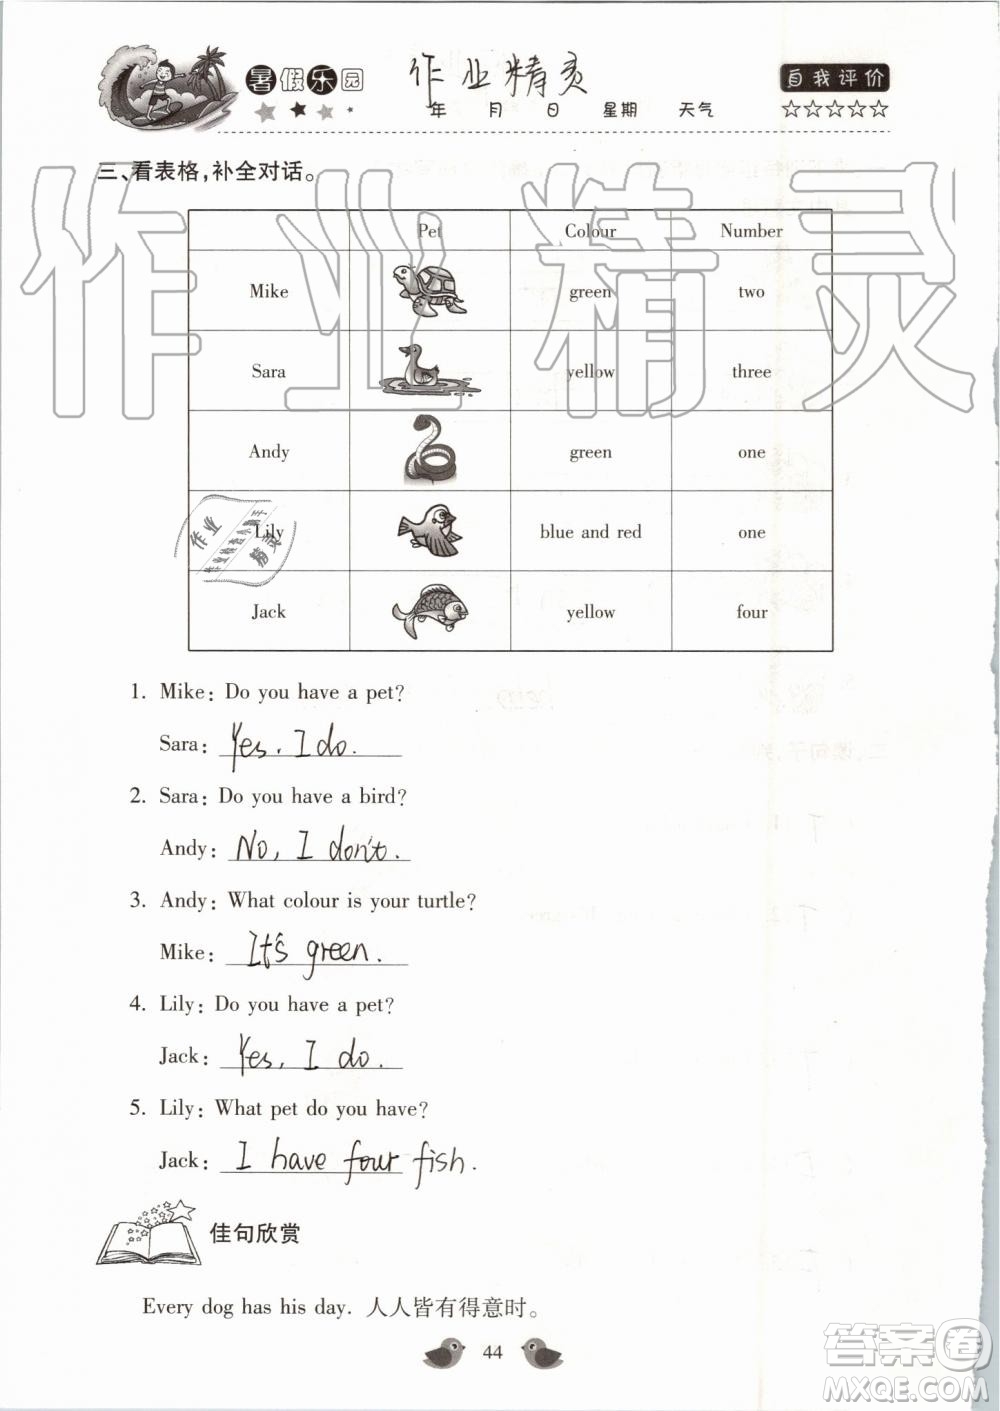 暑假乐园
作业精灵
自我评价
年 月 日 星期 天气
☆☆☆☆☆
三、看表格,补全对话。
Pet Colour Number
Mike green two
Sara yellow three
Andy green one
Lily blue and red one
Jack yellow four
作业精灵
作业
精灵
1. Mike: Do you have a pet?
Sara: Yes, I do.
2. Sara: Do you have a bird?
Andy: No, I don't.
3. Andy: What colour is your turtle?
Mike: It's green.
4. Lily: Do you have a pet?
Jack: Yes, I do.
5. Lily: What pet do you have?
Jack: I have four fish.
佳句欣赏
Every dog has his day. 人人皆有得意时。
44
答案圈
MXQE.COM